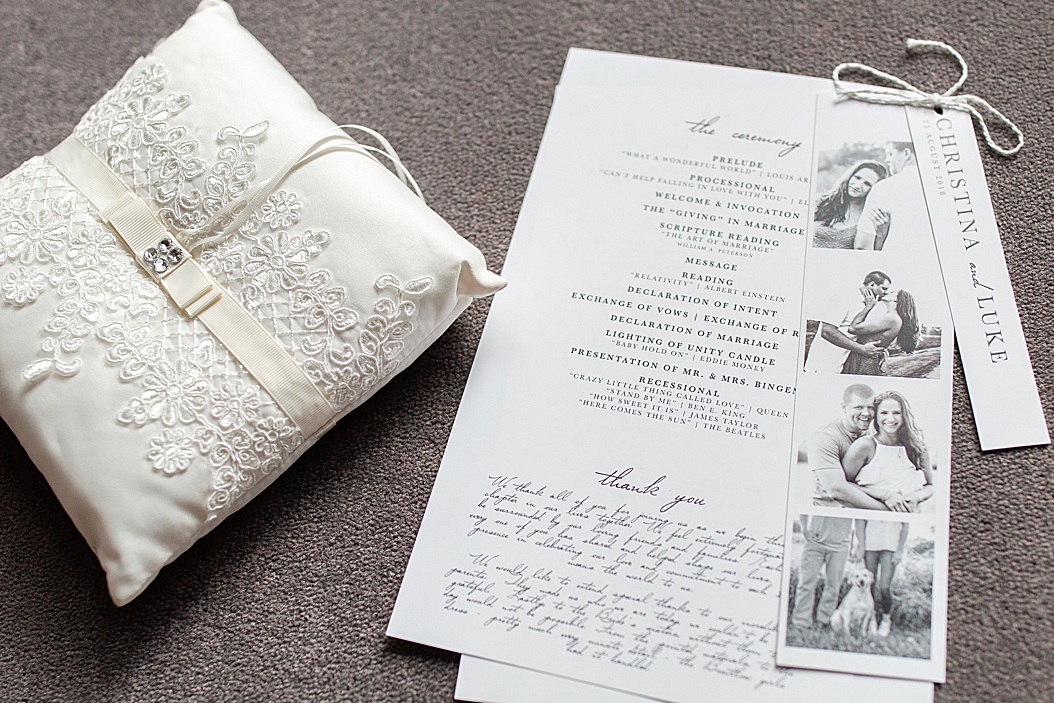 the ceremony
PRELUDE
"WHAT A WONDERFUL WORLD" | LOUIS AR
PROCESSIONAL
"CAN'T HELP FALLING IN LOVE WITH YOU" | EL
WELCOME & INVOCATION
THE "GIVING" IN MARRIAGE
SCRIPTURE READING
"THE ART OF MARRIAGE"
WILLIAM A. PETERSON
MESSAGE
READING
"RELATIVITY" | ALBERT EINSTEIN
DECLARATION OF INTENT
EXCHANGE OF VOWS | EXCHANGE OF R
DECLARATION OF MARRIAGE
LIGHTING OF UNITY CANDLE
"BABY HOLD ON" | EDDIE MONEY
PRESENTATION OF MR. & MRS. BINGEN
RECESSIONAL
"CRAZY LITTLE THING CALLED LOVE" | QUEEN
"STAND BY ME" | BEN E. KING
"HOW SWEET IT IS" | JAMES TAYLOR
"HERE COMES THE SUN" | THE BEATLES
thank you
We thank all of you for joining us as we begin the
chapter in our lives together. We feel intensely fortunate
be surrounded by our loving friends and families
every one of you has shared and helped shape our lives
presence in celebrating our love and commitment to each
means the world to us
We would like to extend special thanks to our
parents. They made us who we are today
grateful. Lastly, to the
day would not be possible. From the
dress
pretty much every minute detail
had it handled
CHRISTINA and LUKE
25 AUGUST 2018